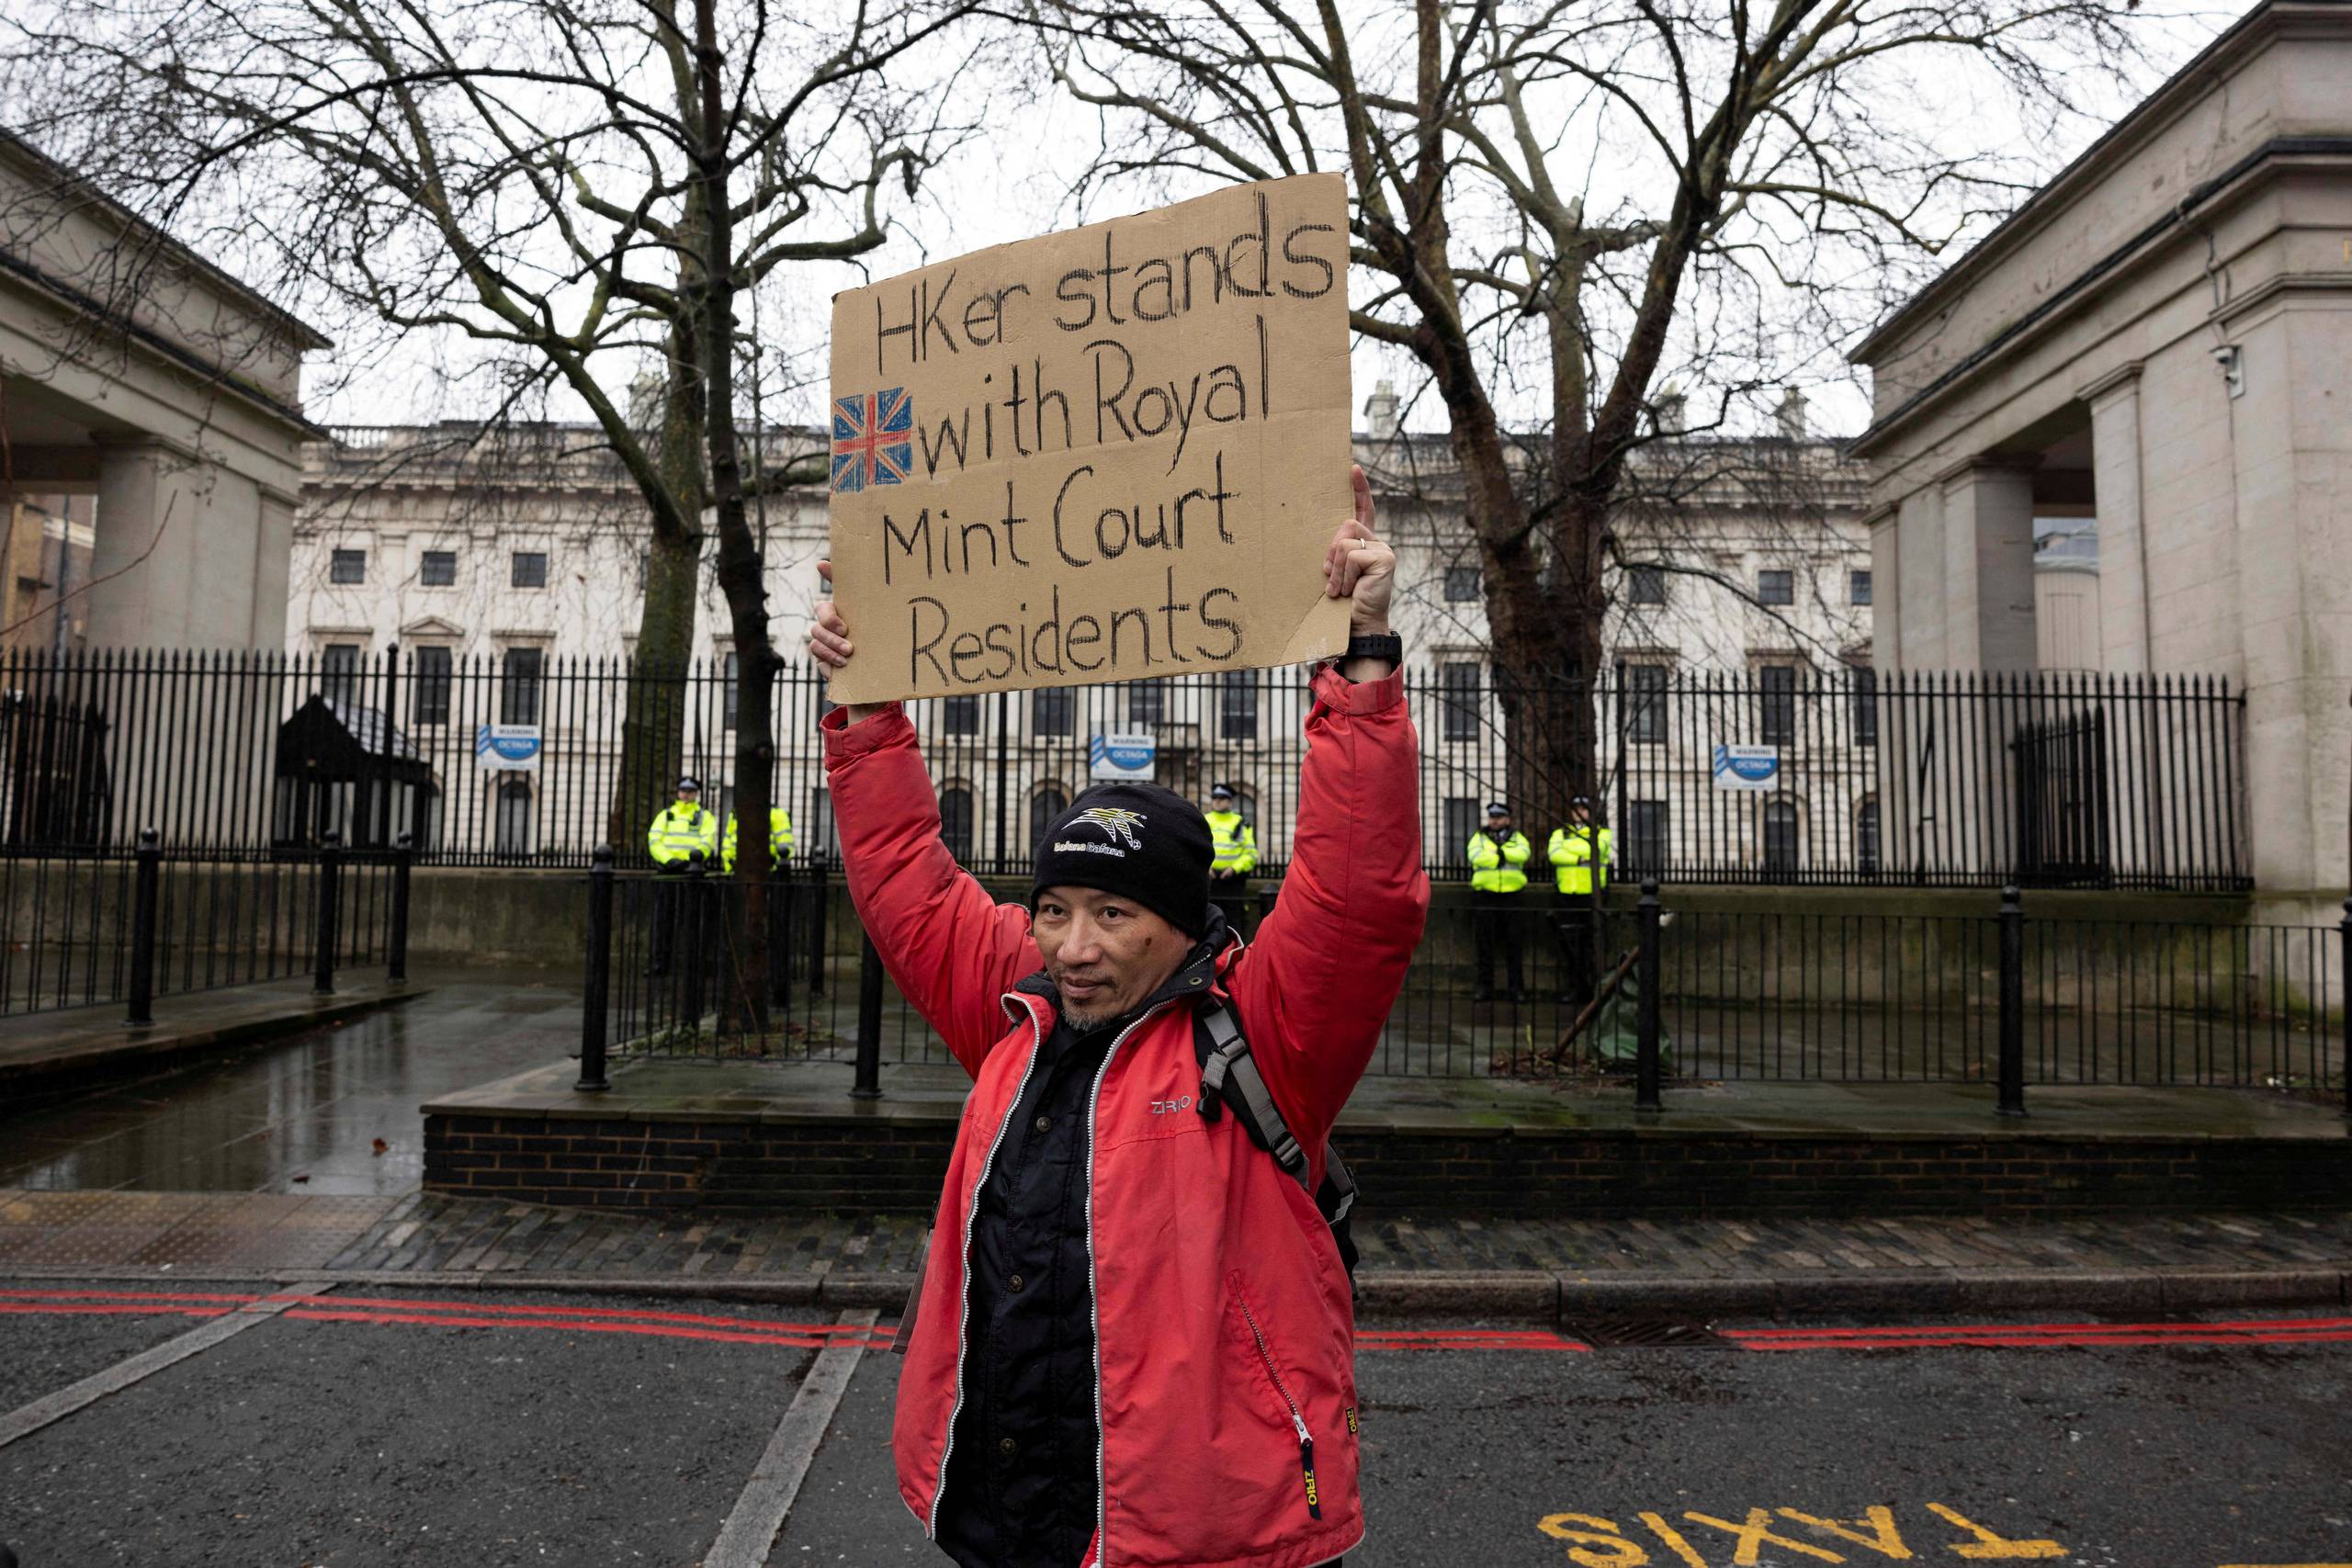 HKer stands
with Royal
Mint Court
Residents
WARNING
OCTAGA
WARNING
OCTAGA
WARNING
OCTAGA
Bafana Bafana
ZIRIO
ZIRIO
ZIRIO
TAXIS